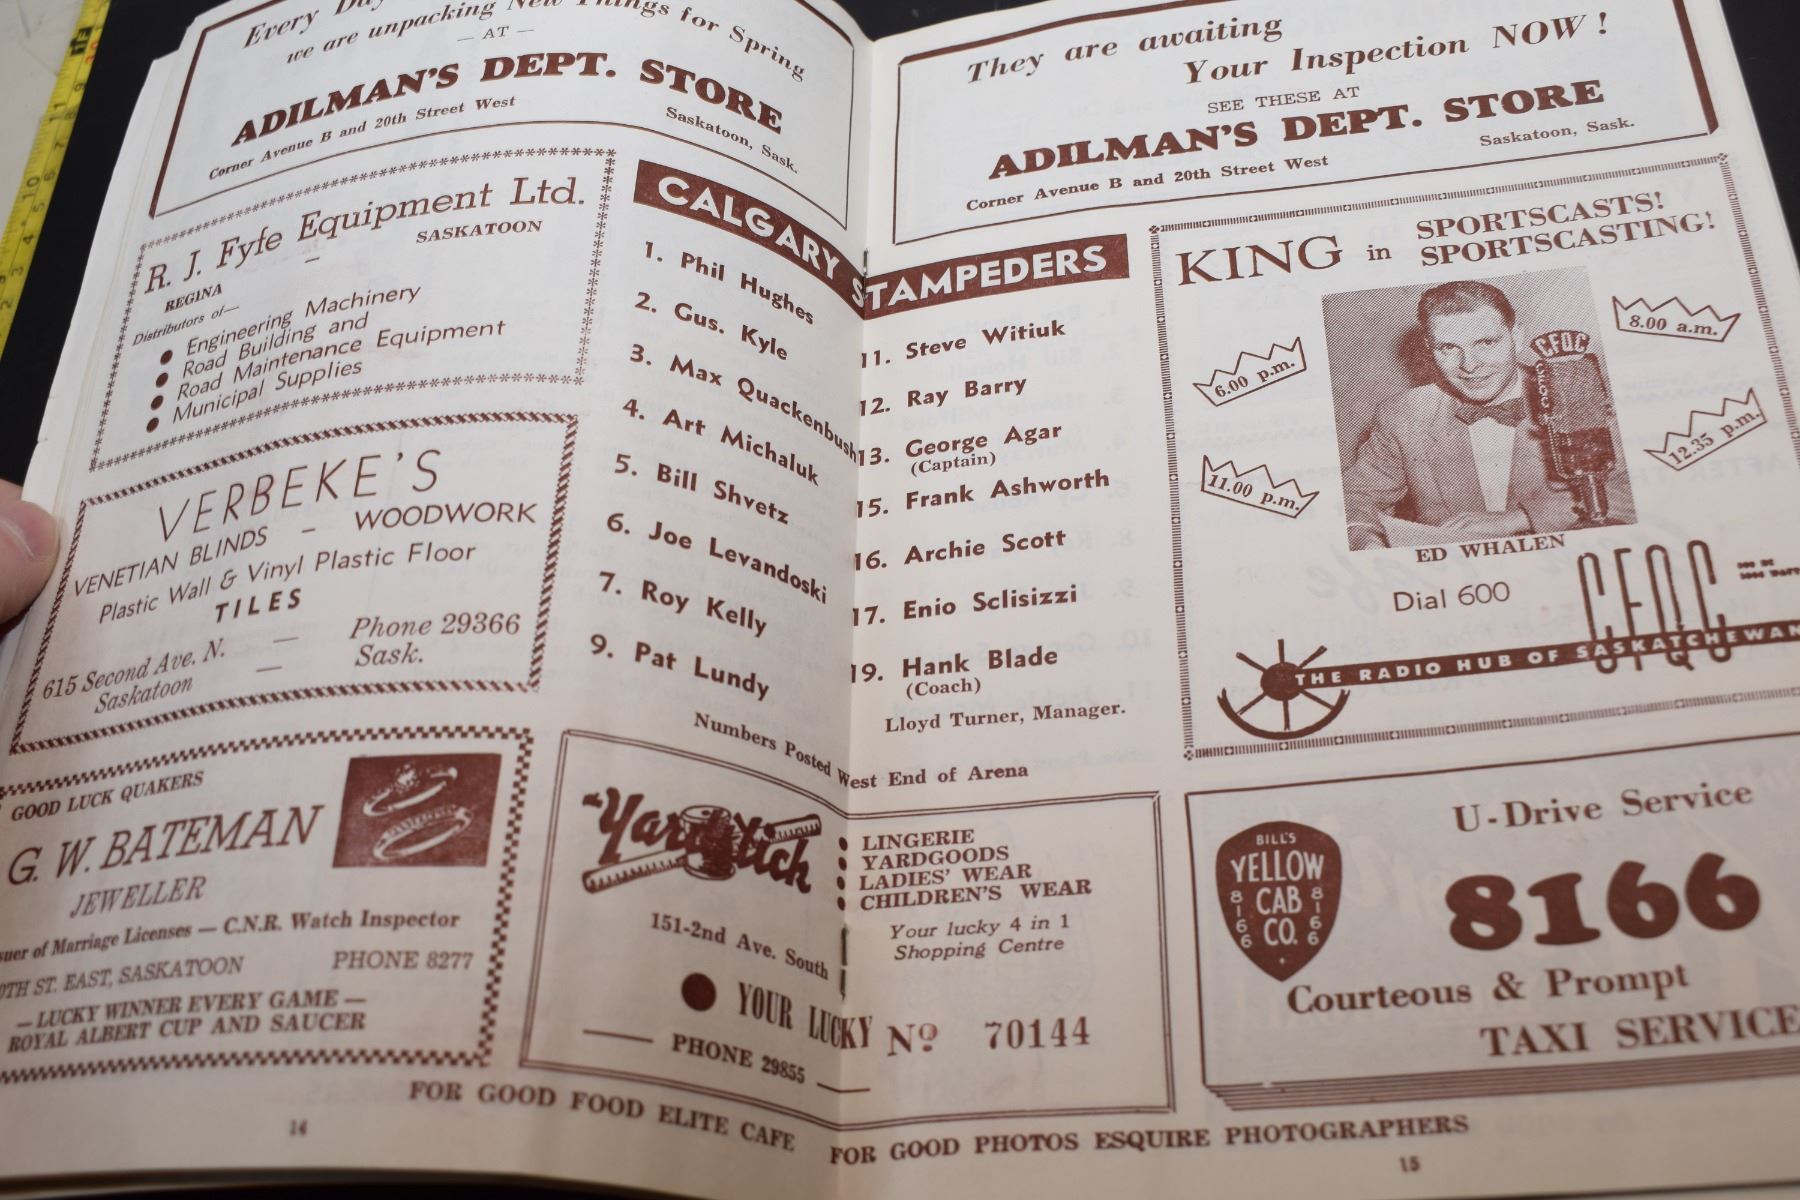 Every Day
we are unpacking New Things for Spring
— AT —
ADILMAN'S DEPT. STORE
Corner Avenue B and 20th Street West
Saskatoon, Sask.
R. J. Fyfe Equipment Ltd.
REGINA — SASKATOON
Distributors of—
● Engineering Machinery
● Road Building and
● Road Maintenance Equipment
● Municipal Supplies
VERBEKE'S
VENETIAN BLINDS — WOODWORK
Plastic Wall & Vinyl Plastic Floor
TILES
615 Second Ave. N. — Phone 29366
Saskatoon — Sask.
GOOD LUCK QUAKERS
G. W. BATEMAN
JEWELLER
suer of Marriage Licenses — C.N.R. Watch Inspector
0TH ST. EAST, SASKATOON PHONE 8277
— LUCKY WINNER EVERY GAME —
ROYAL ALBERT CUP AND SAUCER
CALGARY STAMPEDERS
1. Phil Hughes
2. Gus. Kyle
3. Max Quackenbush
4. Art Michaluk
5. Bill Shvetz
6. Joe Levandoski
7. Roy Kelly
9. Pat Lundy
11. Steve Witiuk
12. Ray Barry
13. George Agar
(Captain)
15. Frank Ashworth
16. Archie Scott
17. Enio Sclisizzi
19. Hank Blade
(Coach)
Lloyd Turner, Manager.
Numbers Posted West End of Arena
"Yardstich
151-2nd Ave. South
● YOUR LUCKY No 70144
— PHONE 29855 —
● LINGERIE
● YARDGOODS
● LADIES' WEAR
● CHILDREN'S WEAR
Your lucky 4 in 1
Shopping Centre
FOR GOOD FOOD ELITE CAFE
14
They are awaiting
Your Inspection NOW!
SEE THESE AT
ADILMAN'S DEPT. STORE
Corner Avenue B and 20th Street West
Saskatoon, Sask.
KING in SPORTSCASTS!
SPORTSCASTING!
6.00 p.m.
8.00 a.m.
11.00 p.m.
12.35 p.m.
CFQC
CFQC
ED WHALEN
Dial 600
CFQC
THE RADIO HUB OF SASKATCHEWAN
BILL'S
YELLOW
CAB
CO.
8166
8166
U-Drive Service
8166
Courteous & Prompt
TAXI SERVICE
FOR GOOD PHOTOS ESQUIRE PHOTOGRAPHERS
15